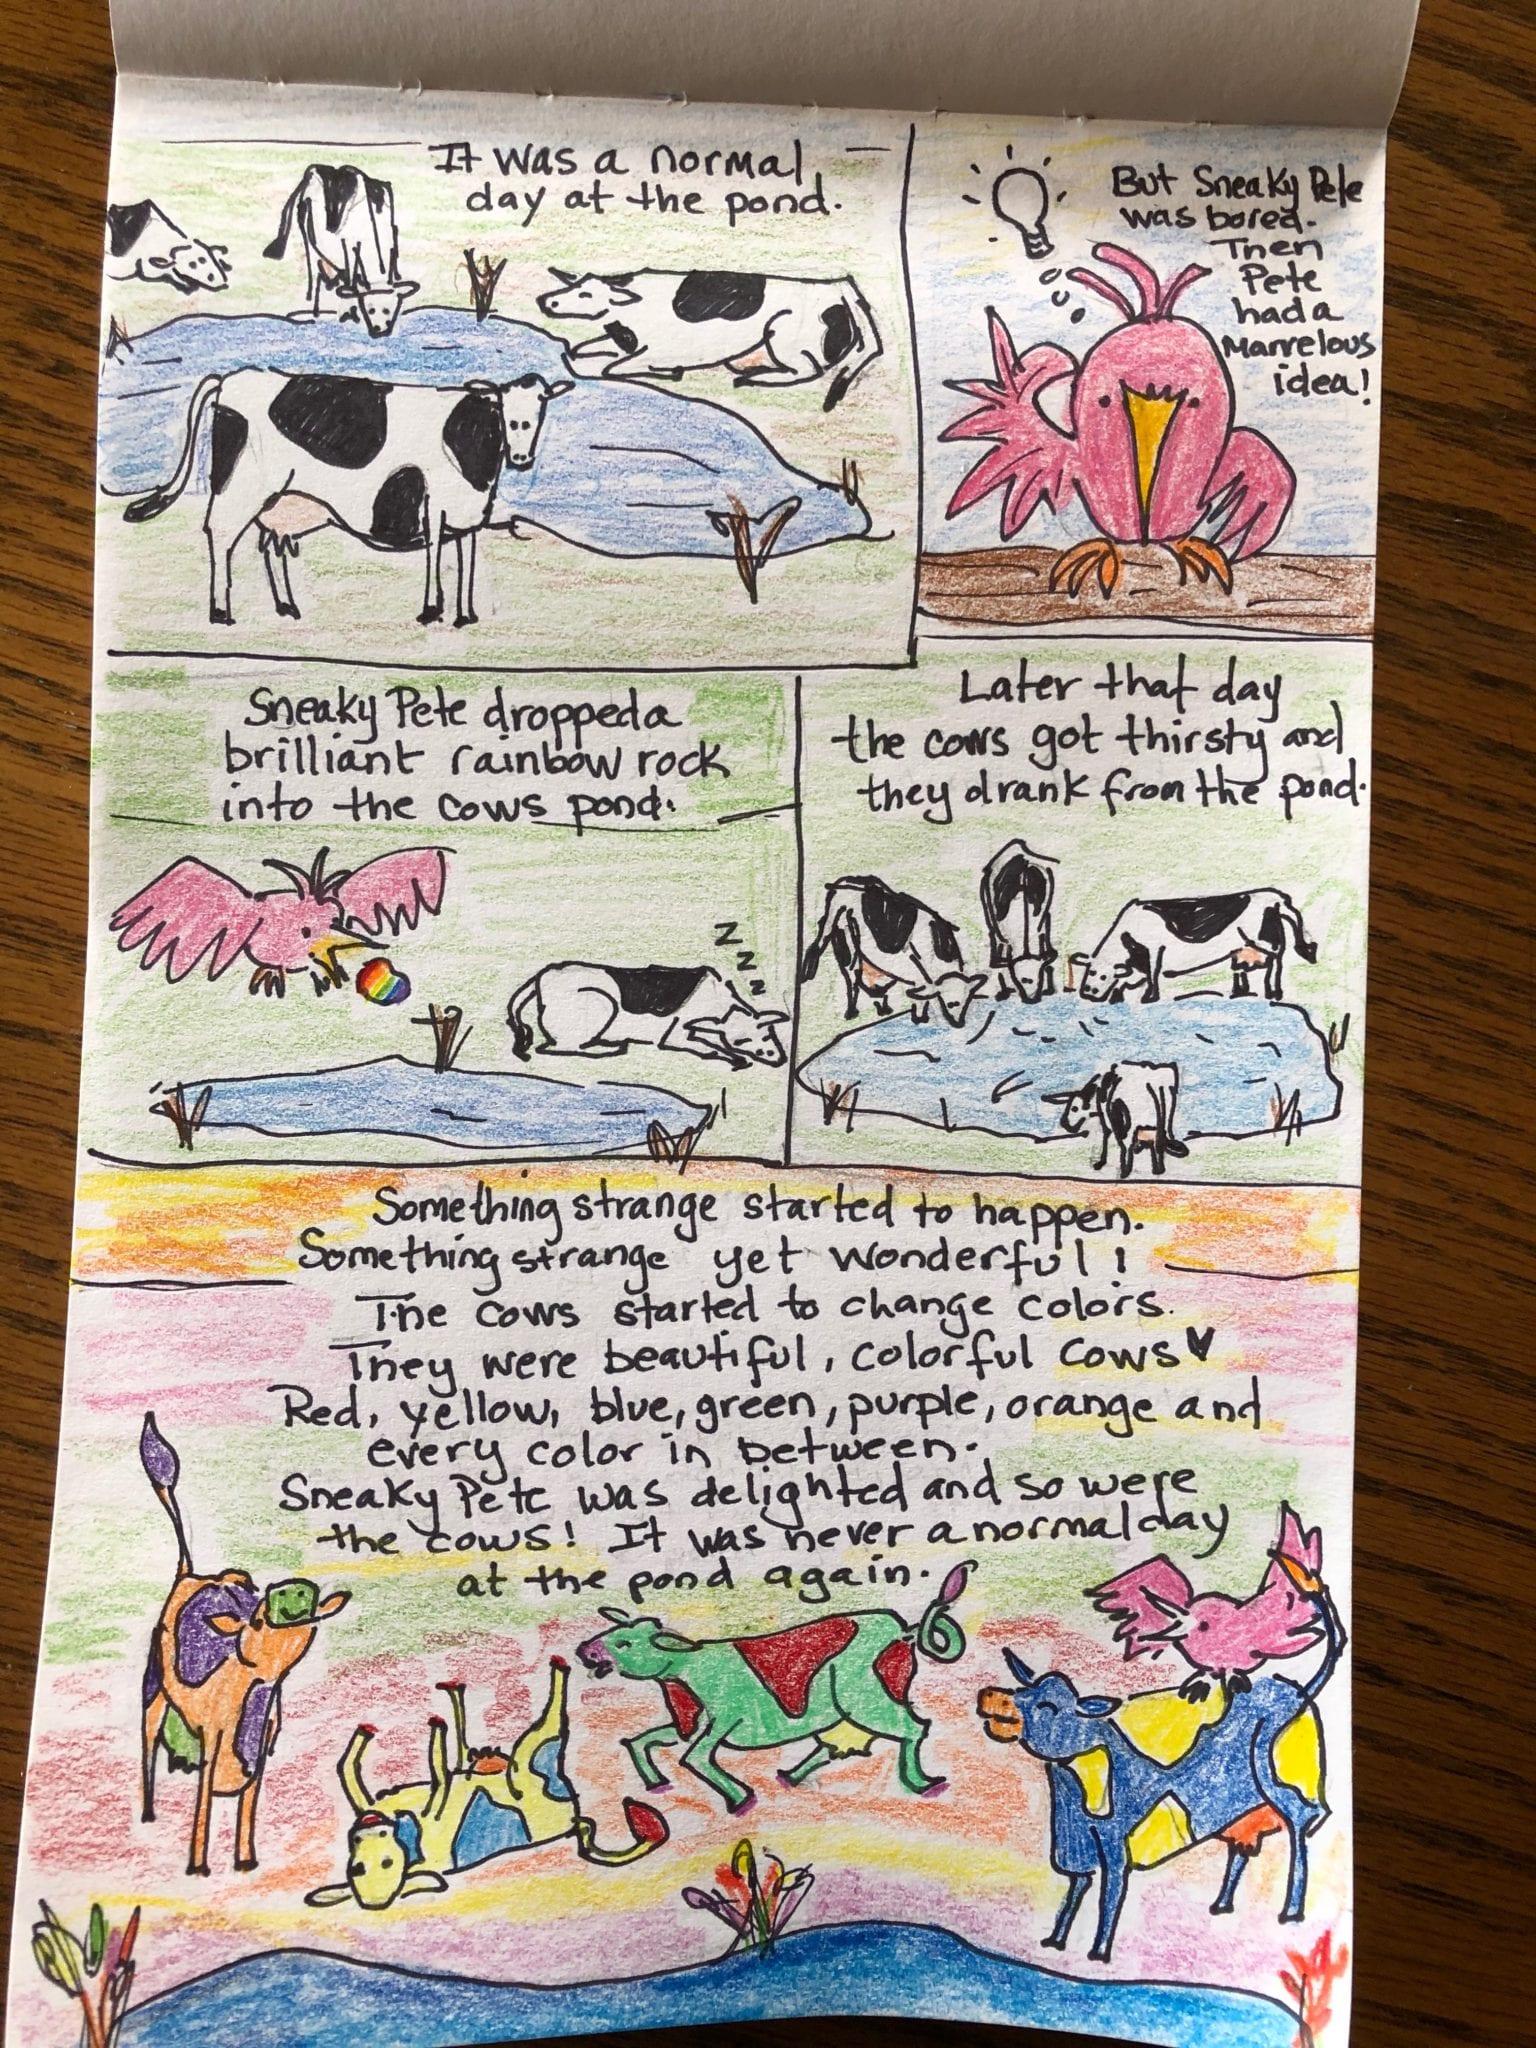 It was a normal
day at the pond.
But Sneaky Pete
was bored.
Then
Pete
had a
Marvelous
idea!
Sneaky Pete dropped a
brilliant rainbow rock
into the cows pond.
z
z
z
Later that day
the cows got thirsty and
they drank from the pond.
Something strange started to happen.
Something strange yet wonderful!
The cows started to change colors.
They were beautiful, colorful cows♥
Red, yellow, blue, green, purple, orange and
every color in between.
Sneaky Pete was delighted and so were
the cows! It was never a normal day
at the pond again.